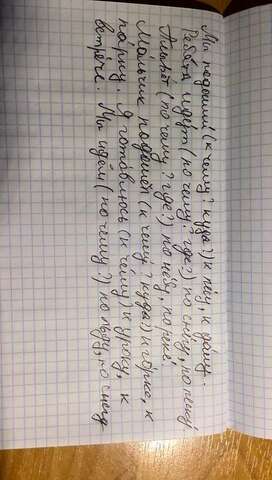 Мы подошли (к чему? куда?) к лесу, к дому.
Ребята идут (по чему? где?) по снегу, по
Плывёт (по чему? где?) по небу, по реке.
Мальчик подошёл (к чему? куда?) к горке, к
парку. Я готовлюсь (к чему) к уроку, к
встрече. Мы идём (по чему?) по льду, по снегу